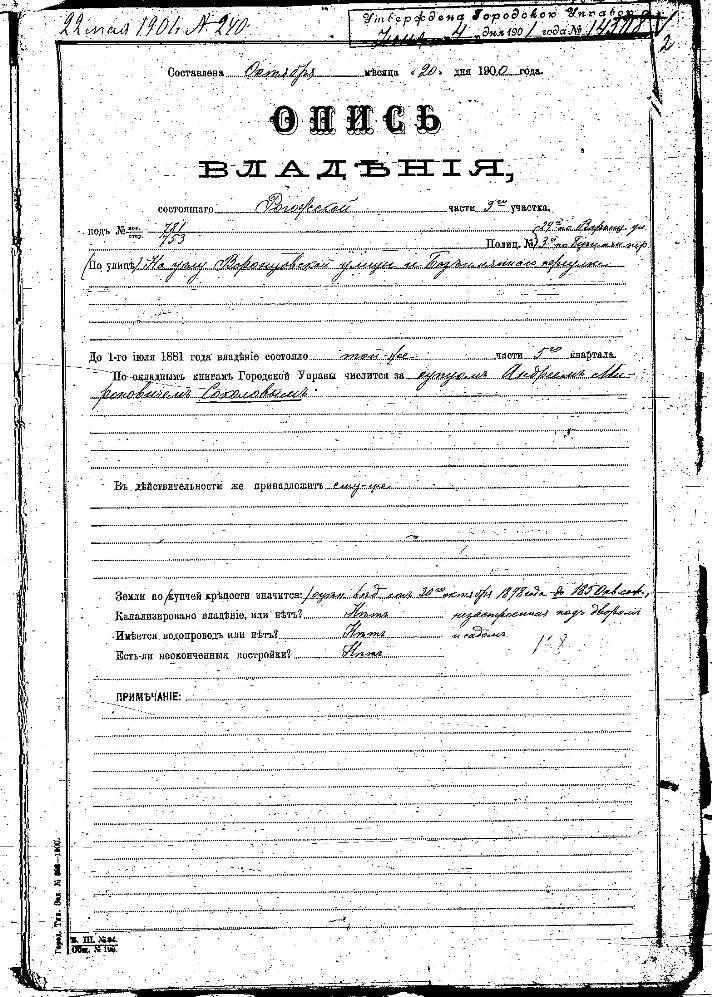 22 мая 1901 № 240
Утверждена Городской Управой
Июня 4 дня 1901 года №
2
Составлена Октября мѣсяца «20» дня 1900 года.
ОПИСЬ
ВЛАДѢНІЯ,
состоящаго Рогожской части 3го участка.
подъ № нов. 781
стар. 753
29 по Воронц. ул.
Полиц. № 3 по пер.
(По улицѣ) На углу Воронцовской улицы и Безъимяннаго переулка
До 1-го іюля 1881 года владѣніе состояло той же части 5го квартала.
По окладнымъ книгамъ Городской Управы числится за купцомъ Андреемъ Ми-
роновичемъ Соколовымъ.
Въ дѣйствительности же принадлежитъ ему-же
Земли по купчей крѣпости значится: 30го октября 1898 года до 185 кв. саж.,
Канализировано владѣніе, или нѣтъ? Нѣтъ незастроенная подъ дворомъ
Имѣется водопроводъ или нѣтъ? Нѣтъ и садомъ
Есть-ли неоконченныя постройки? Нѣтъ
ПРИМѢЧАНІЕ:
В. III. № 34.
Общ. № 198.